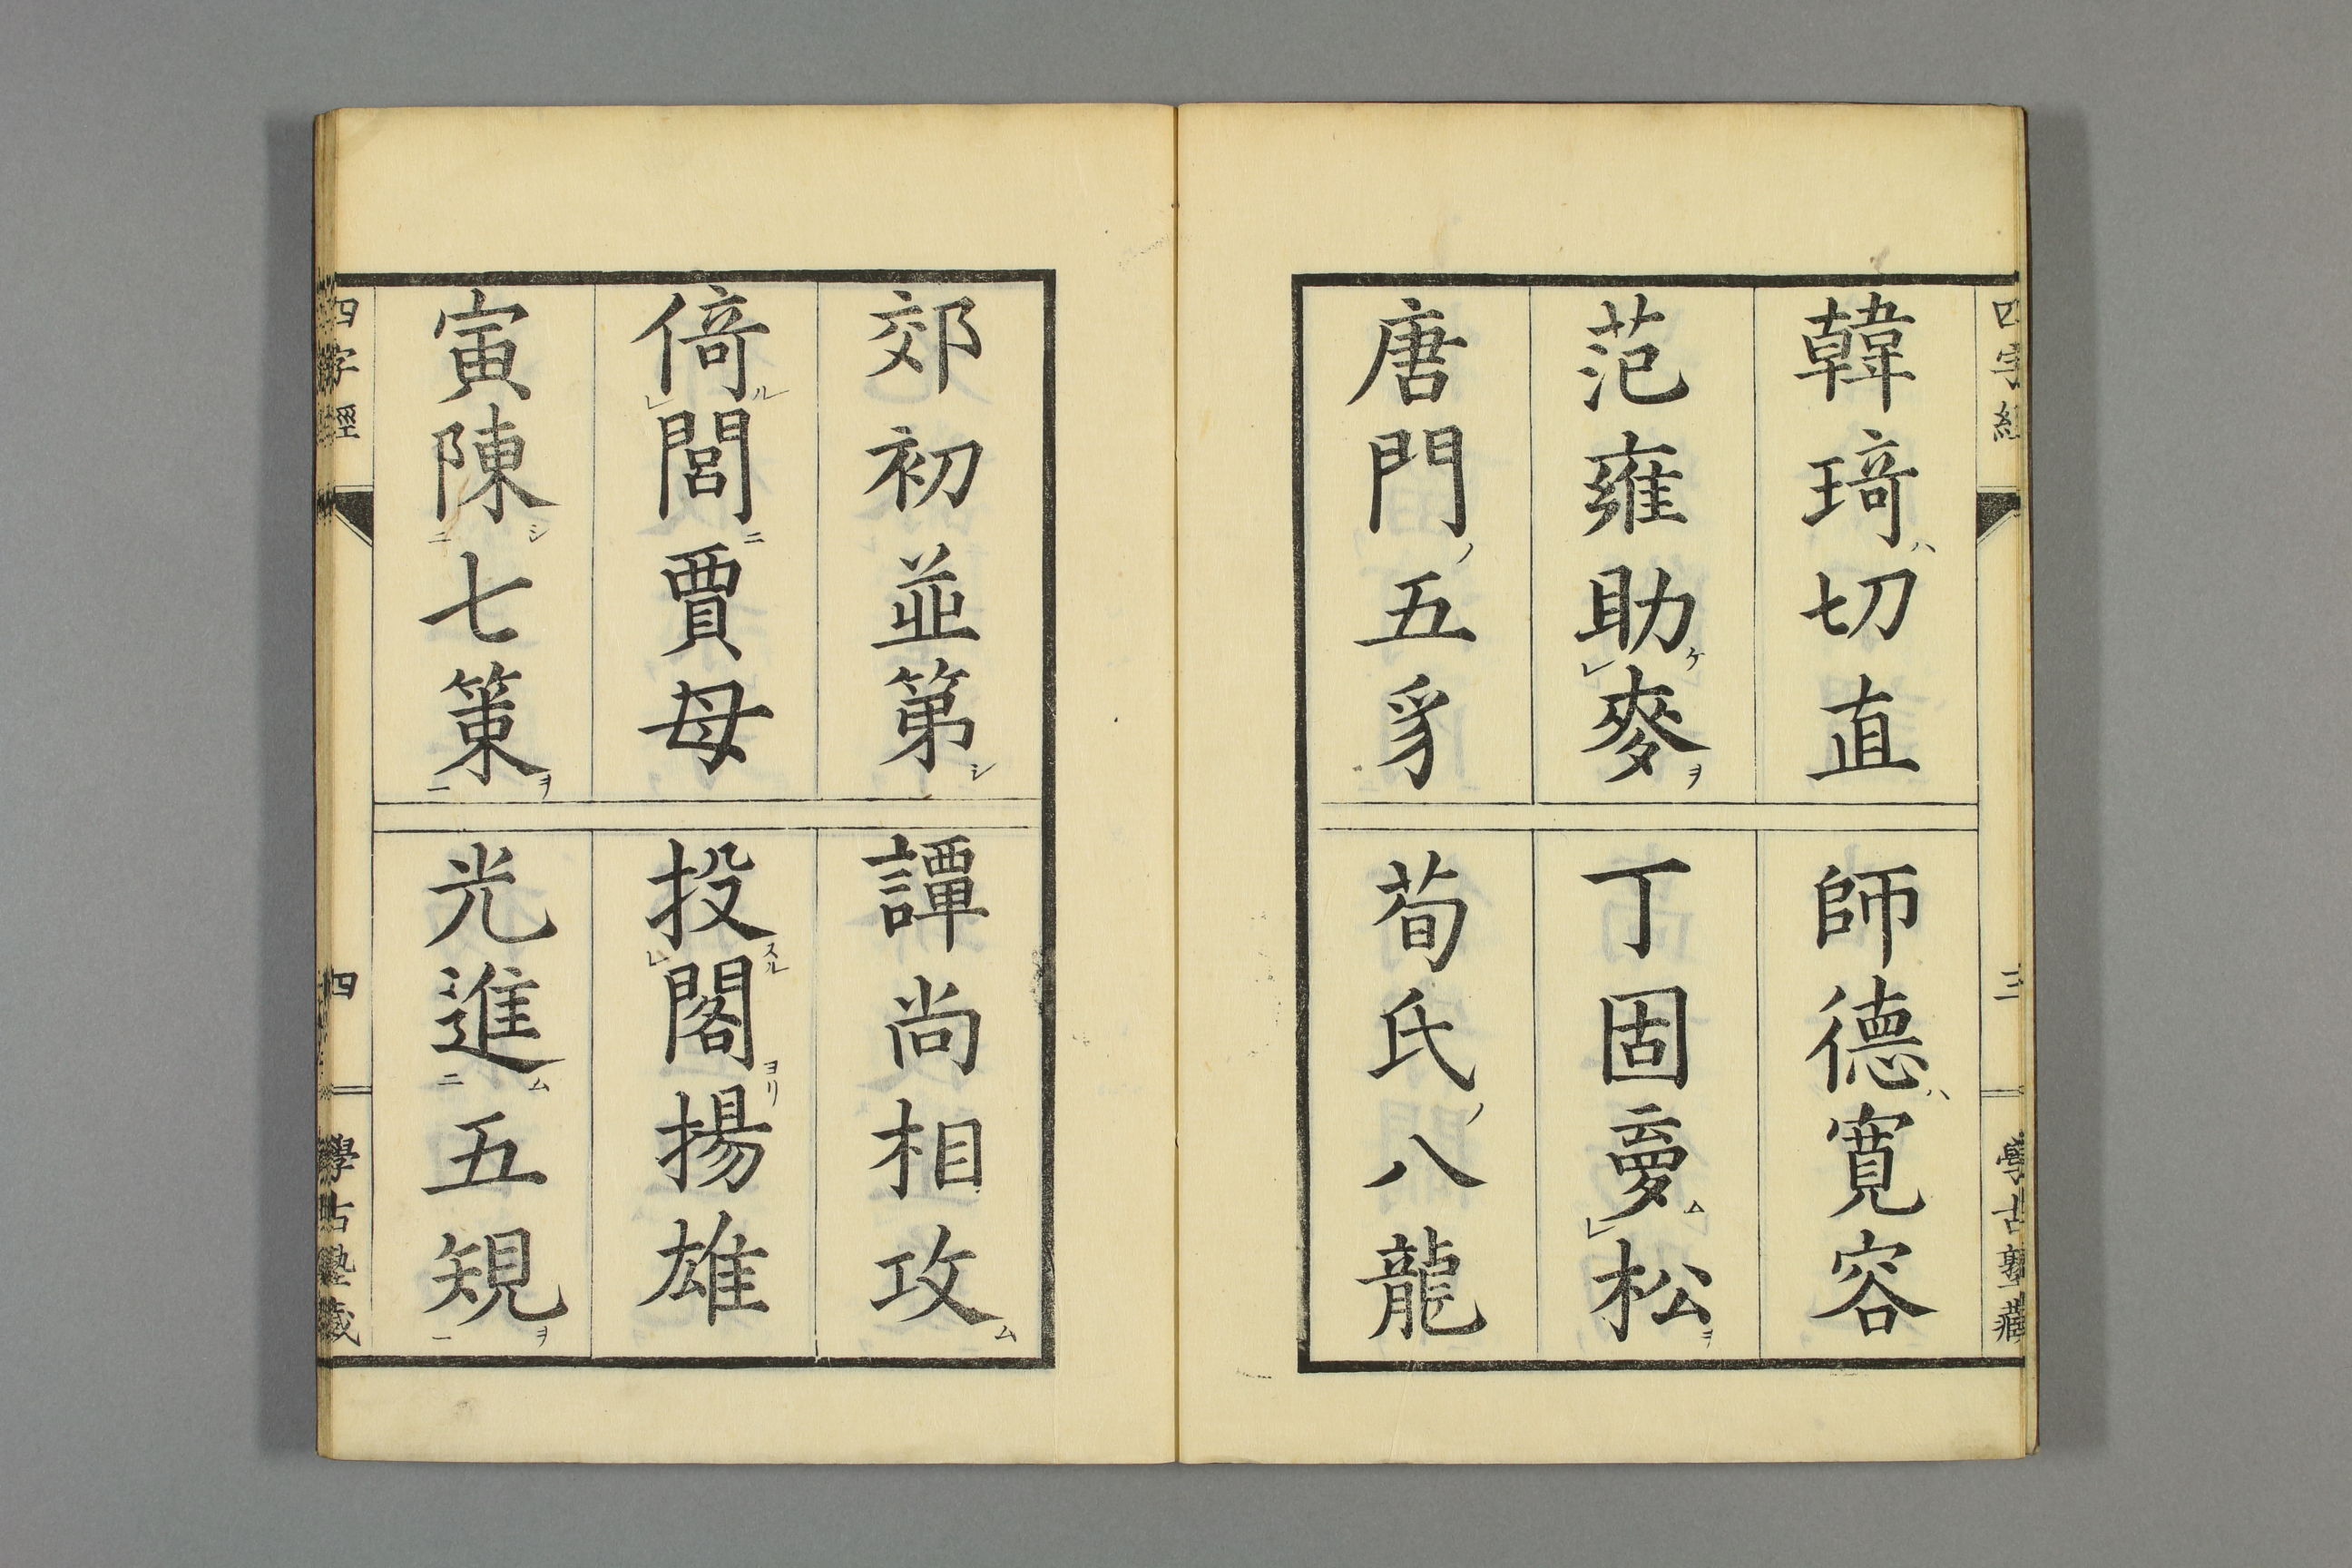 四字經
三
學古塾藏
韓琦ハ切直
師德ハ寬容
范雍助ケ㆑麥ヲ
丁固夢ム㆑松ヲ
唐門ノ五豸
荀氏ノ八龍
郊初並第シ
譚尚相攻ム
倚ル㆑閭ニ賈母
投スル㆑閣ヨリ揚雄
寅陳シ㆓七策ヲ㆒
光進ム㆓五規ヲ㆒
四字經
四
學古塾藏